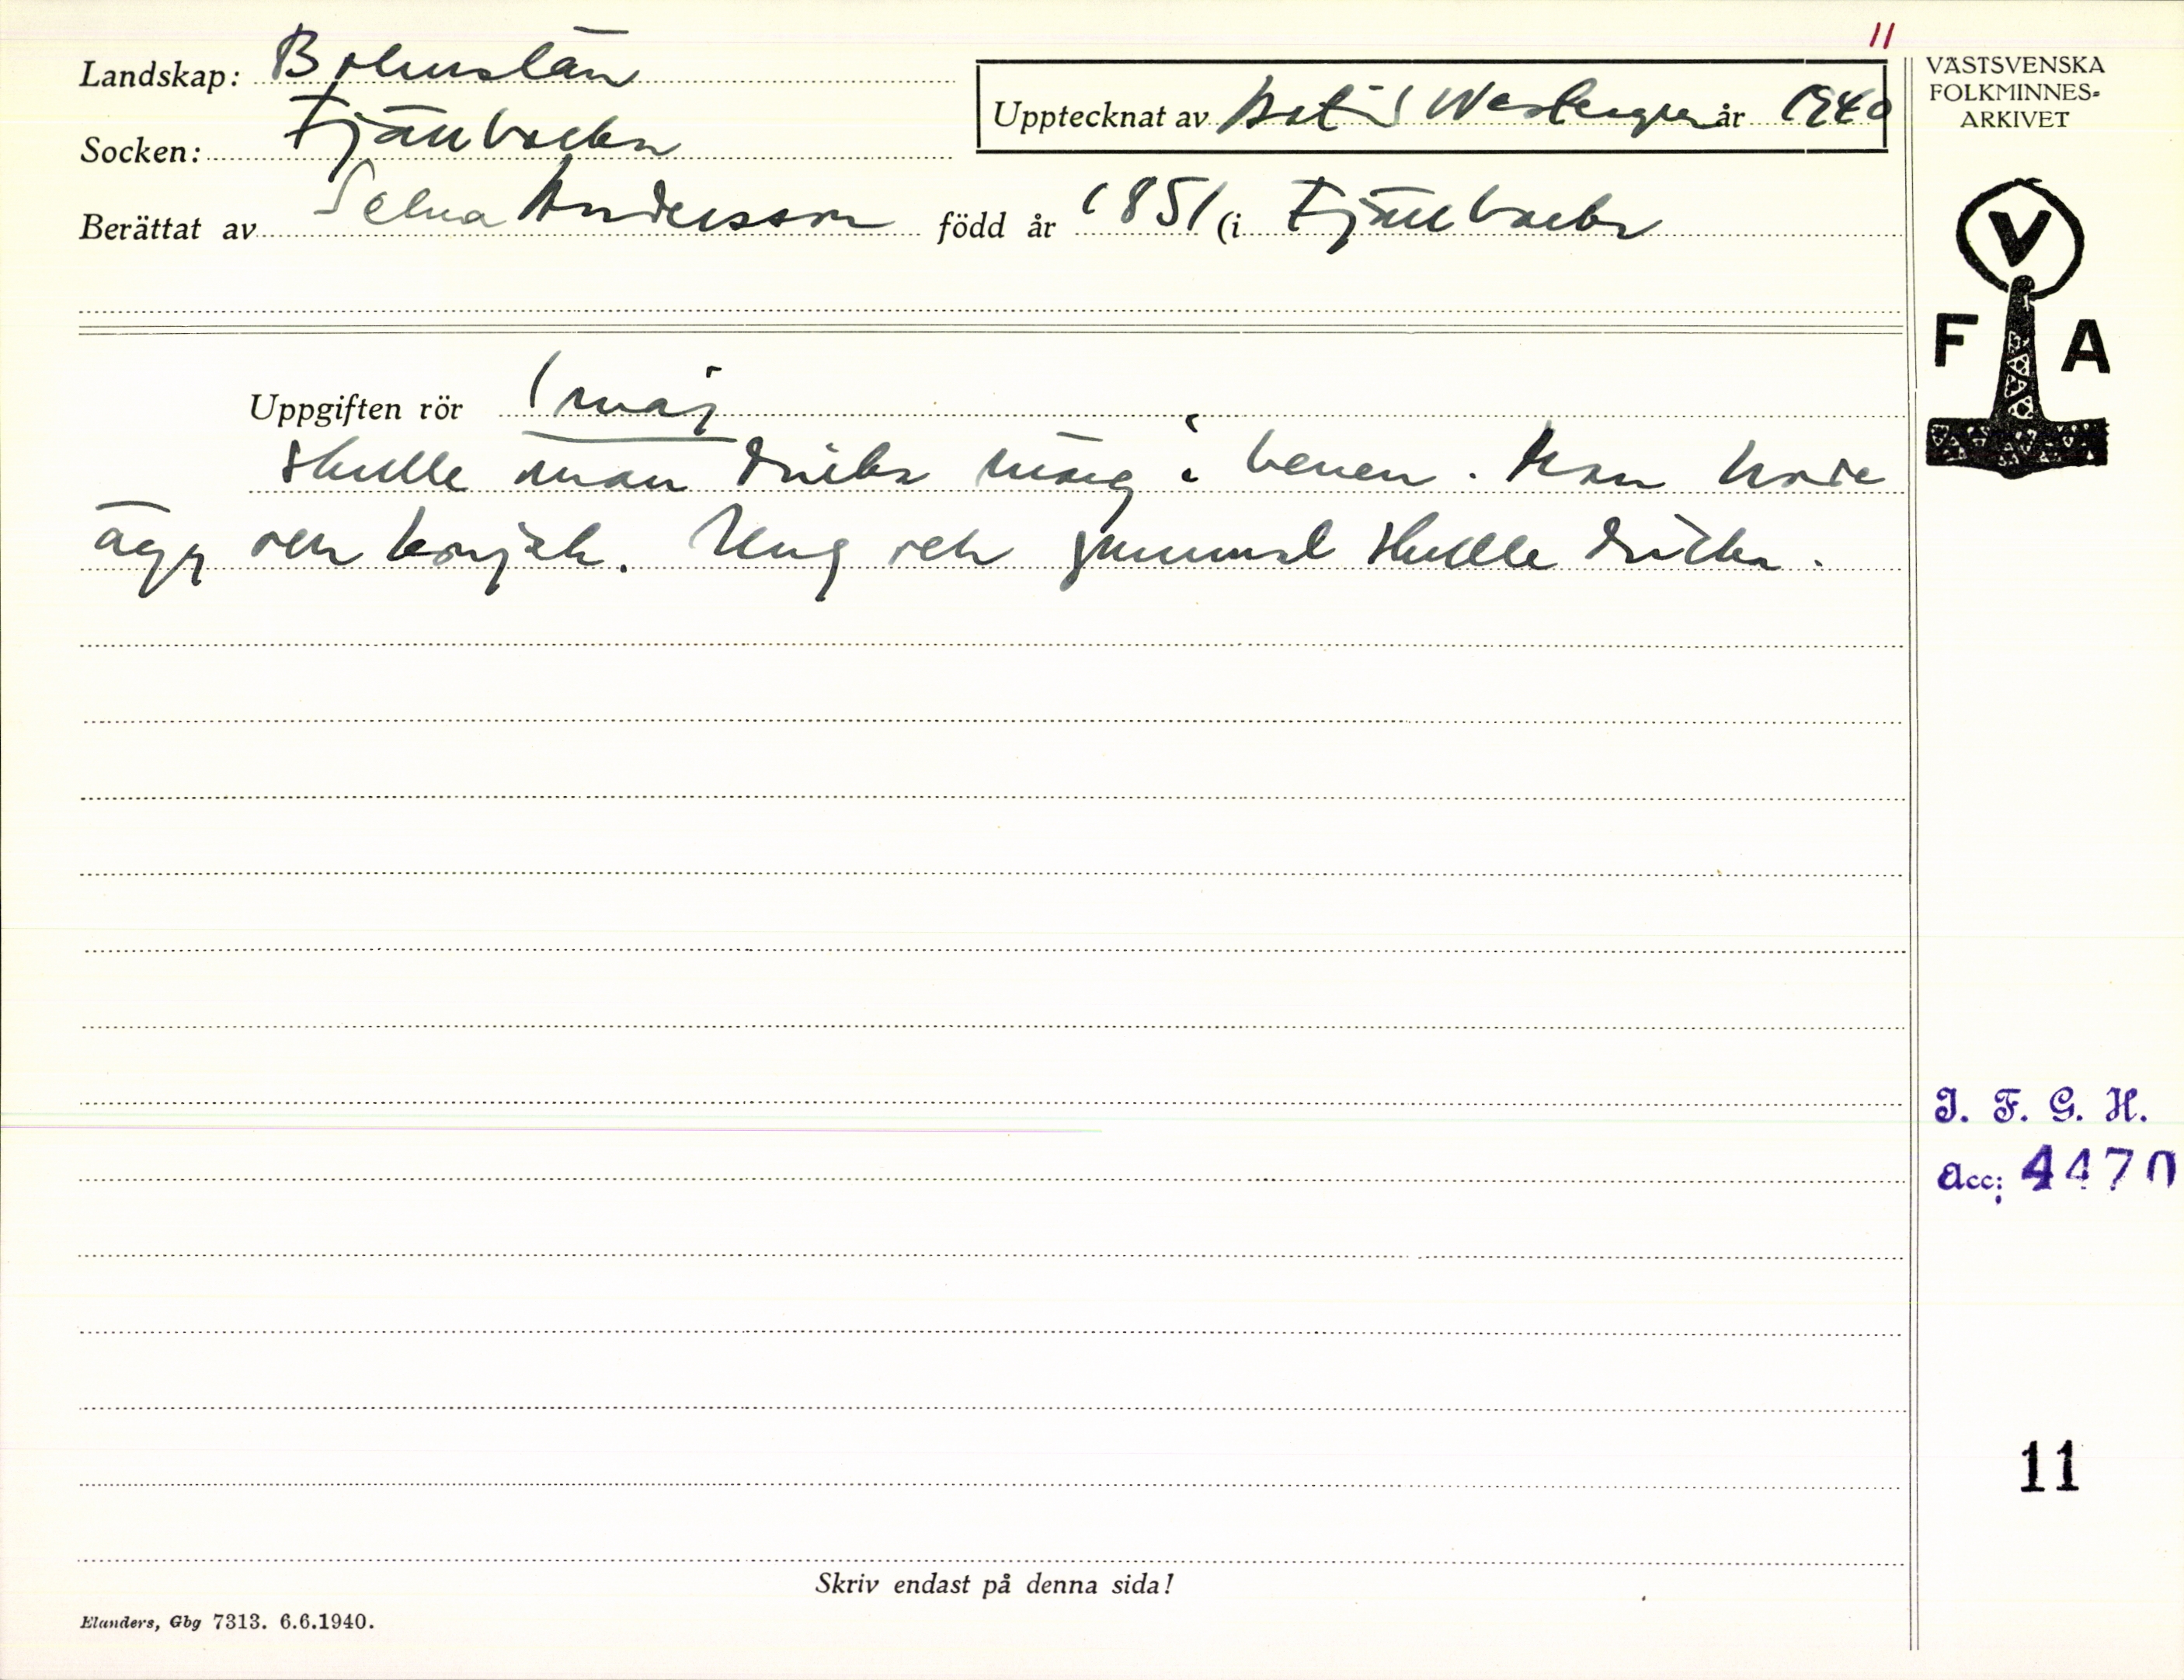 11
Landskap: Bohuslän
Socken: Fjällbacka
Upptecknat av Westergren år 1940
Berättat av Selma Andersson född år 1851 (i Fjällbacka
VÄSTSVENSKA
FOLKMINNES-
ARKIVET
V
F A
Uppgiften rör 1 maj
skulle man dricka märg i benen. Man hade
ägg och konjak. Ung och gammal skulle dricka.
I. F. G. H.
Acc: 4470
11
Skriv endast på denna sida!
Elanders, Gbg 7313. 6.6.1940.